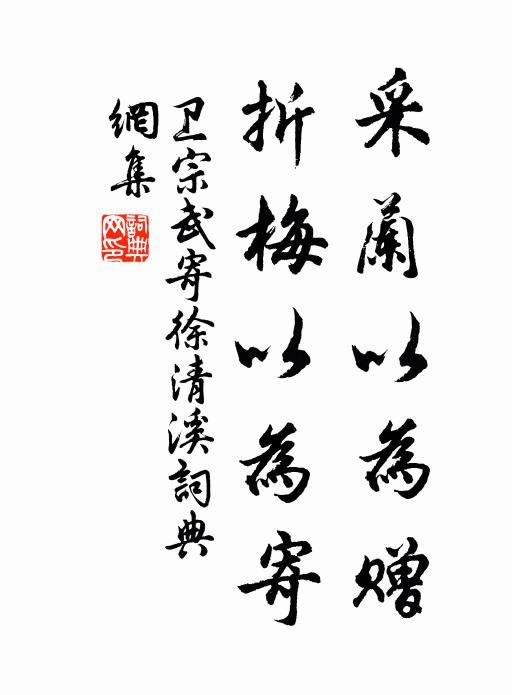 采蘭以為贈
折梅以為寄
卫宗武寄徐清溪詞典
網集
詞典
网印